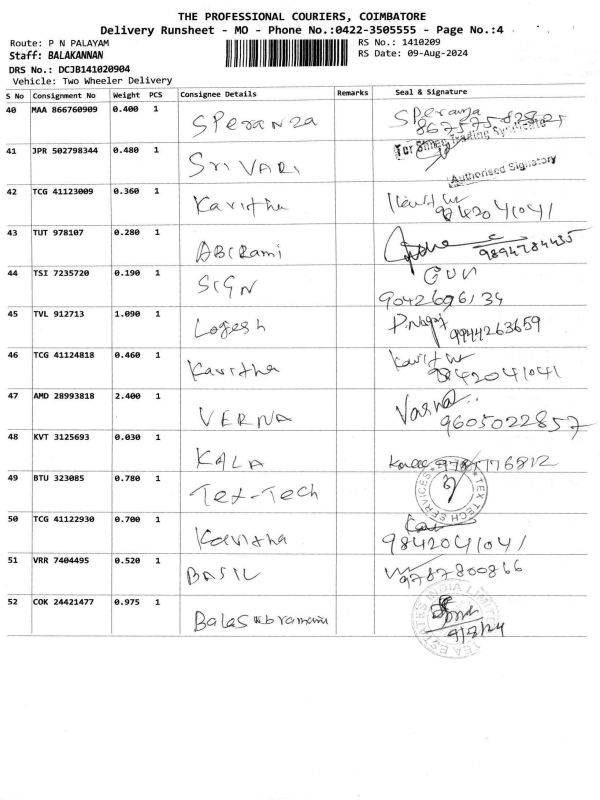 THE PROFESSIONAL COURIERS, COIMBATORE
Delivery Runsheet - MO - Phone No.:0422-3505555 - Page No.:4
Route: P N PALAYAM RS No.: 1410209
Staff: BALAKANNAN RS Date: 09-Aug-2024
DRS No.: DCJB141020904
Vehicle: Two Wheeler Delivery
S No Consignment No Weight PCS Consignee Details Remarks Seal & Signature
40 MAA 866760909 0.400 1 SPeranza SPeranza
41 JPR 502798344 0.480 1 Sri VARI
Authorised Signatory
42 TCG 41123009 0.360 1 Kavitha Kavitha
9842041041
43 TUT 978107 0.280 1 ABIRami
9894784435
44 TSI 7235720 0.190 1 SIGN
9042696134
45 TVL 912713 1.090 1 Logesh 9944263659
46 TCG 41124818 0.460 1 Kavitha Kavitha
9842041041
47 AMD 28993818 2.400 1 VERNA
9605022857
48 KVT 3125693 0.030 1 KALA
49 BTU 323085 0.780 1 Tex-Tech TEX TECH SERVICES
50 TCG 41122930 0.700 1 Kavitha
9842041041
51 VRR 7404495 0.520 1 BASIL
9787800866
52 COK 24421477 0.975 1 Balasubramani
9/8/24